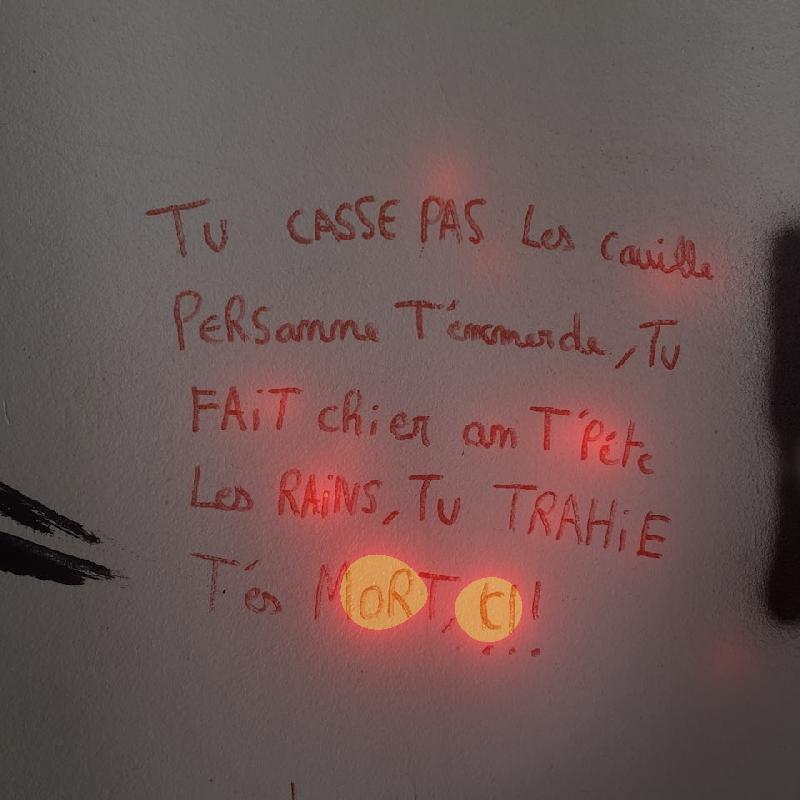 Tu CASSE PAS Les Couille
PERSonne T'emmerde, Tu
FAiT chier on T'Péte
Les RAiNS, Tu TRAHiE
T'es MORT,